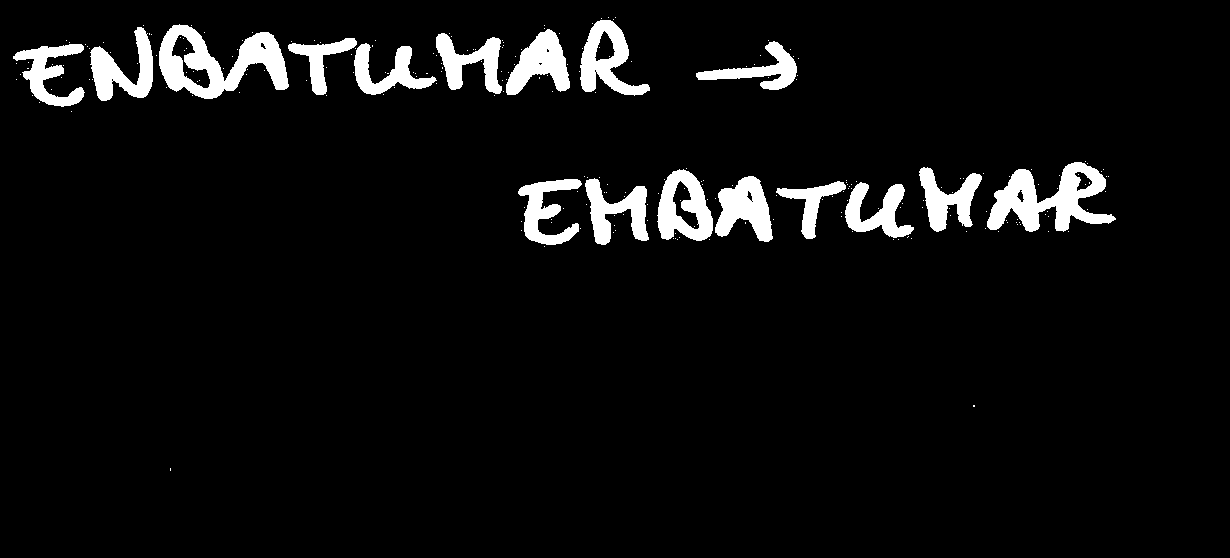 ENBATUMAR →
EMBATUMAR